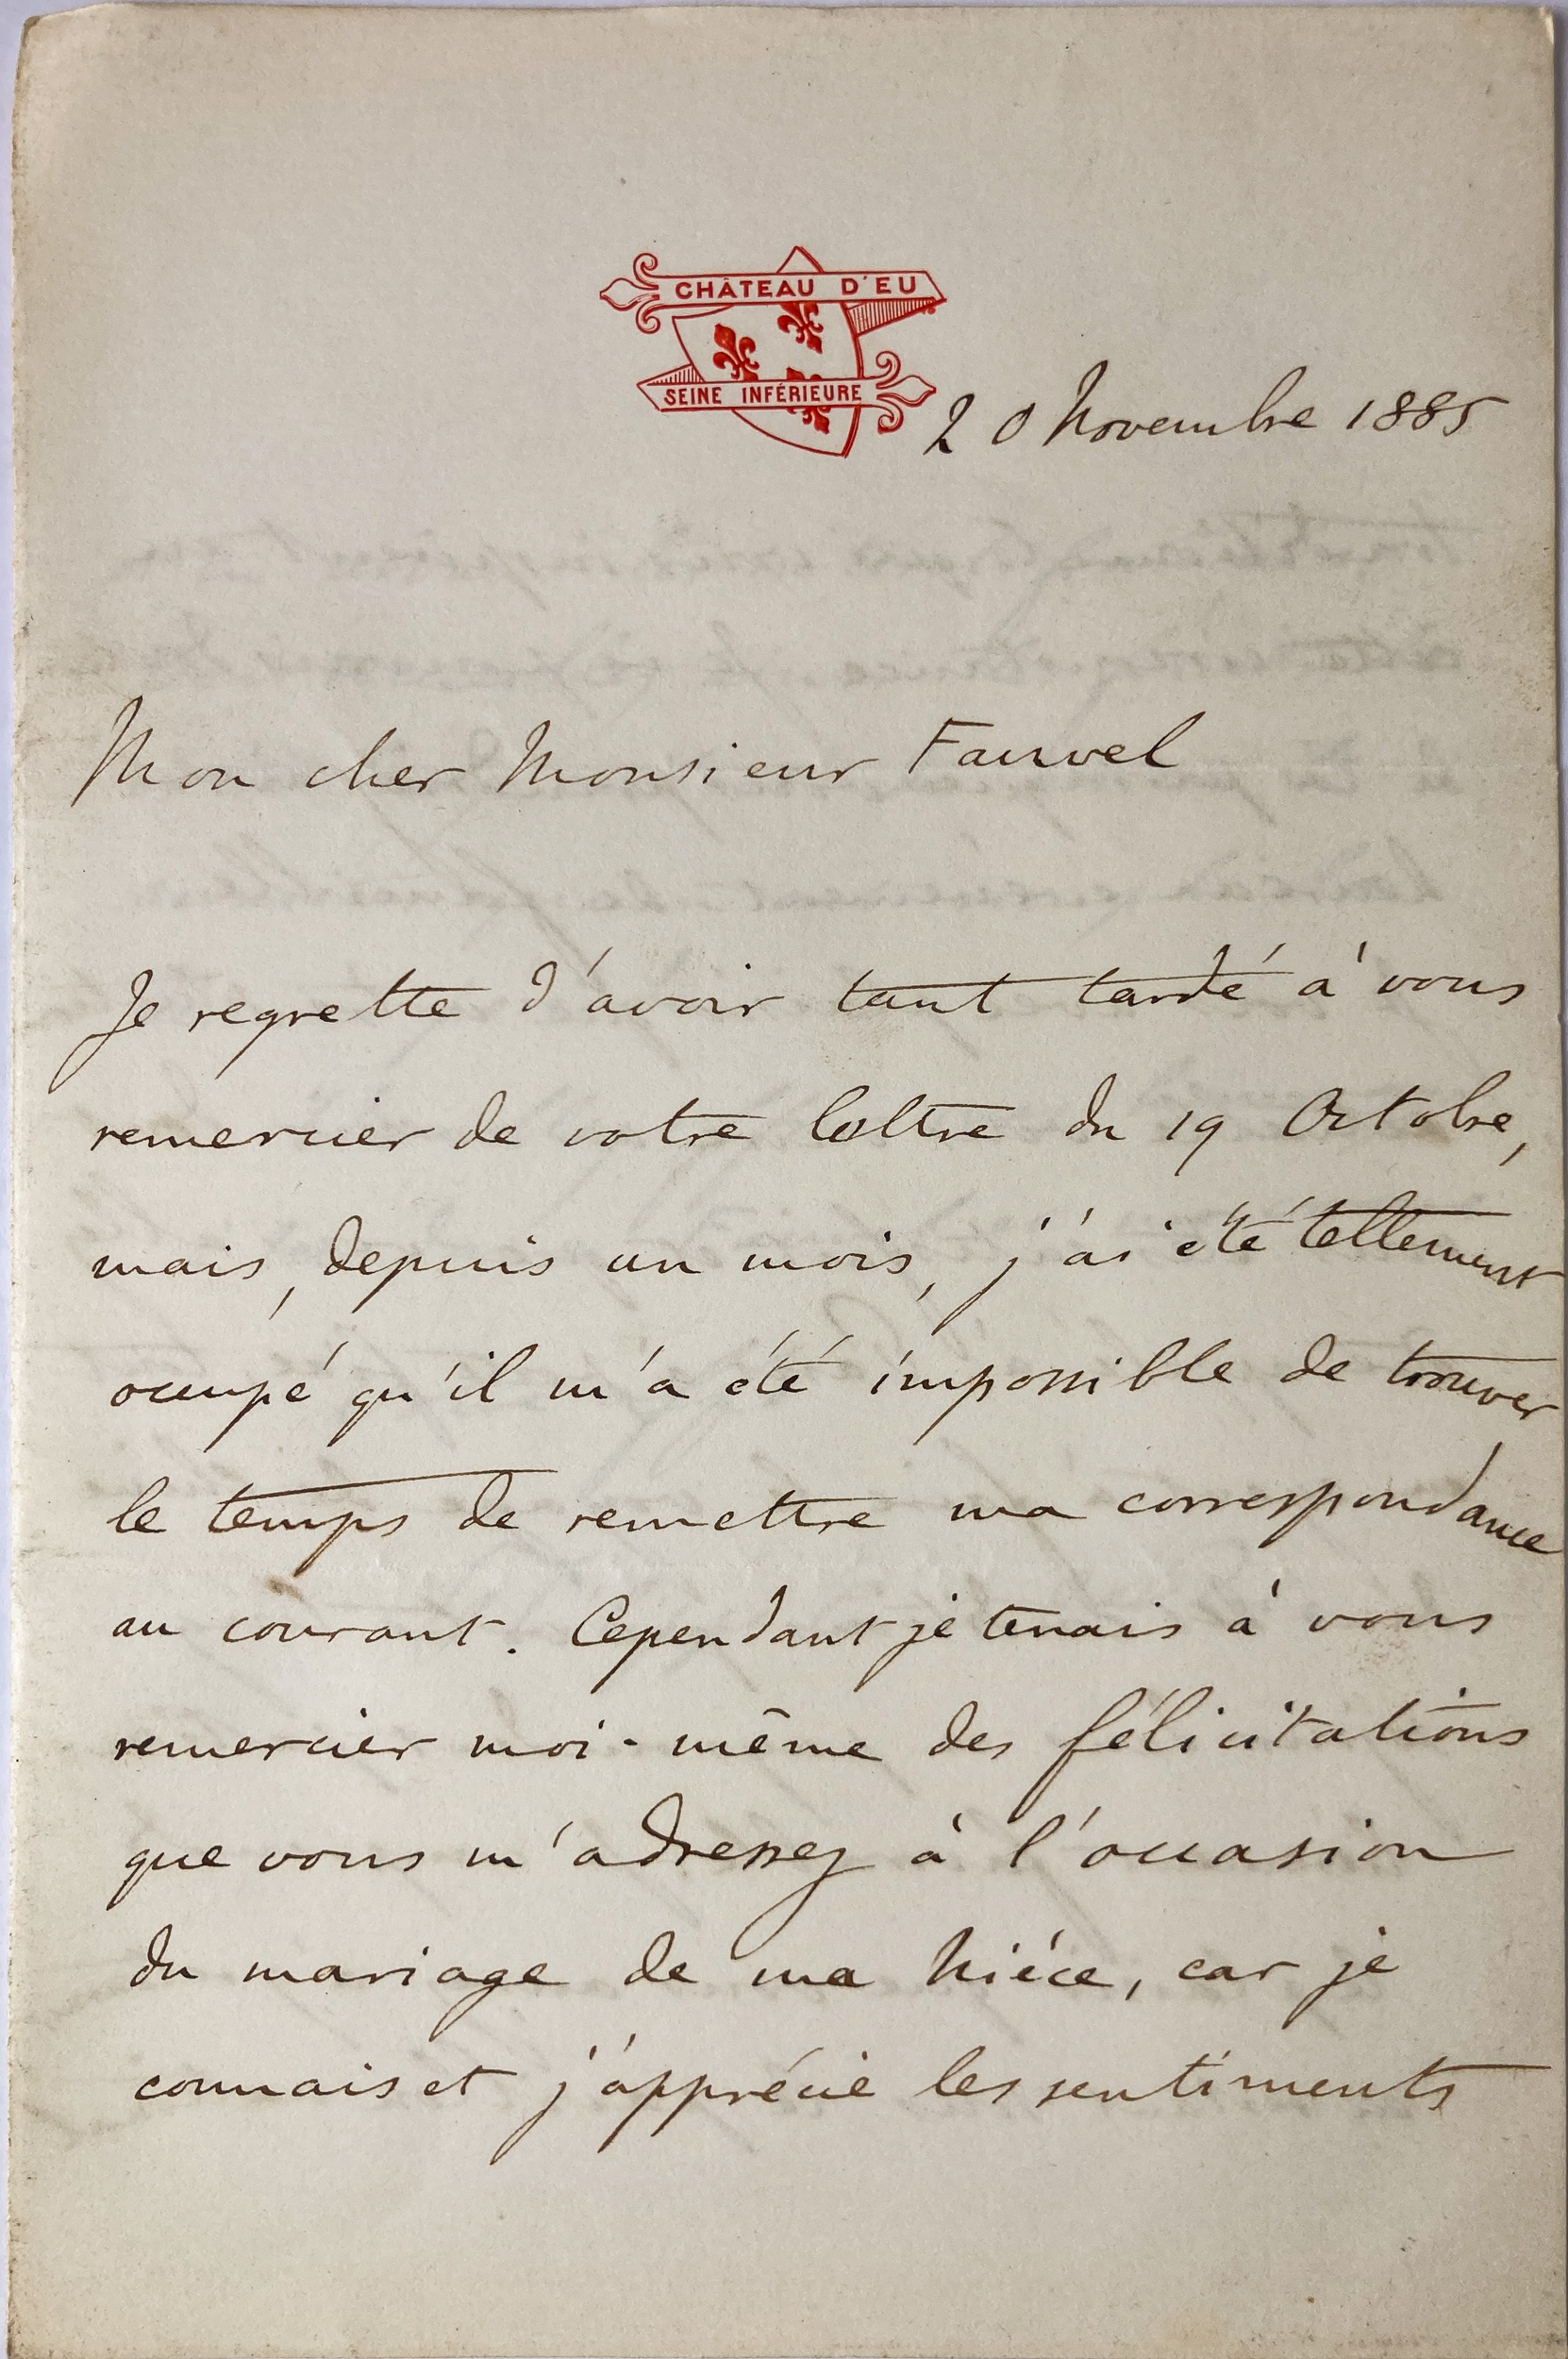 CHÂTEAU D'EU
SEINE INFÉRIEURE
20 Novembre 1885
Mon cher Monsieur Fauvel
Je regrette d'avoir tant tardé à vous
remercier de votre lettre du 19 Octobre,
mais, depuis un mois, j'ai été tellement
occupé qu'il m'a été impossible de trouver
le temps de remettre ma correspondance
au courant. Cependant je tenais à vous
remercier moi-même des félicitations
que vous m'adressez à l'occasion
du mariage de ma Nièce, car je
connais et j'apprécie les sentiments